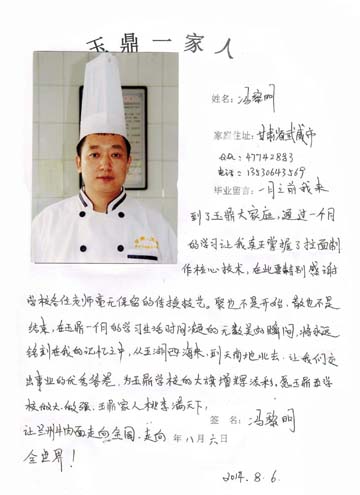 玉鼎一家人
姓名：冯黎明
家庭住址：甘肃省武威市
QQ：47742883
电话：13530643569
毕业留言：一月之前我来
到了玉鼎大家庭，通过一个月
的学习让我真正掌握了拉面制
作核心技术，在此要特别感谢
学校各位老师毫无保留的传授技艺。聚也不是开始，散也不是
结束，在玉鼎一月的学习生活时间凝的无数美好瞬间，将永远
铭刻在我的记忆之中，从五湖四海来，到天南地北去，让我们交
出事业的优秀答卷，为玉鼎学校的大旗增辉添彩，愿玉鼎且学
校做大，做强，玉鼎家人桃李满天下，
签名：冯黎明
让兰州牛肉面走向全国，走向
年八月六日
全世界！
2014.8.6